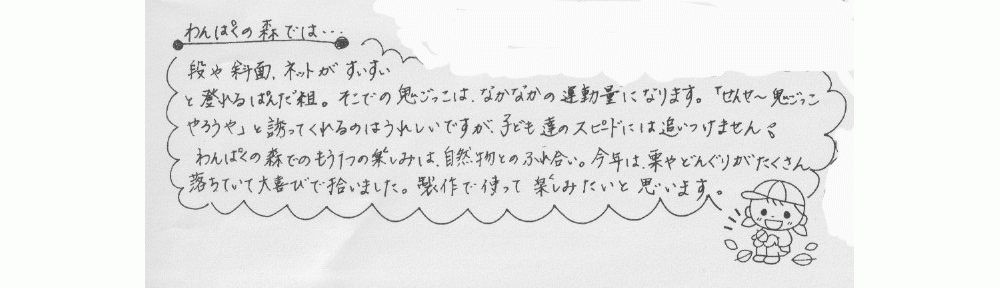 わんぱくの森では・・・
段や斜面、ネットがすいすい
と登れるぱんだ組。そこでの鬼ごっこは、なかなかの運動量になります。「せんせ〜鬼ごっこ
やろうや」と誘ってくれるのはうれしいですが、子ども達のスピードには追いつけません
わんぱくの森でのもう1つの楽しみは、自然物とのふれ合い。今年は、栗やどんぐりがたくさん
落ちていて大喜びで拾いました。製作で使って楽しみたいと思います。